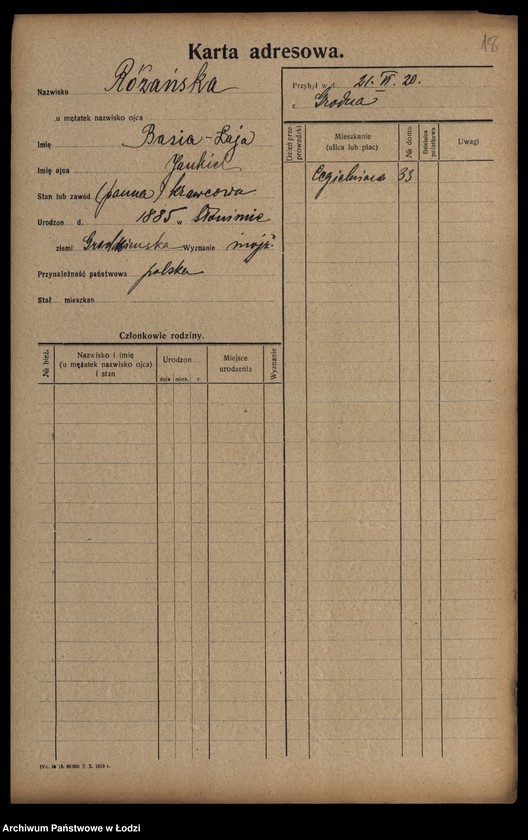 18
Karta adresowa.
Nazwisko Różańska
u mężatek nazwisko ojca
Imię Basia-Łaja
Imię ojca Jankiel
Stan lub zawód (panna) krawcowa
Urodzon d. 1885 w Słonimie
ziemi Grodzieńska Wyznanie mojż.
Przynależność państwowa polska
Stał mieszkan
Członkowie rodziny.
№ bież.
Nazwisko i imię
(u mężatek nazwisko ojca)
i stan
Urodzon
dnia mies. r.
Miejsce
urodzenia
Wyznanie
Przybył w d. 21. VI. 20.
z Grodna
Dzień prze-
prowadzki
Mieszkanie
(ulica lub plac)
№ domu
Dzielnica
podatkowa
Uwagi
Cegielniana 33
IVc. № 18. 60.000 7. X. 1919 r.
Archiwum Państwowe w Łodzi